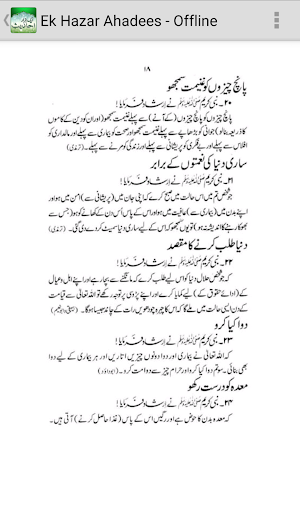 Ek Hazar Ahadees - Offline
۱۸
پانچ چیزوں کو غنیمت سمجھو
۲۰۔ نبی کریم ﷺ نے ارشاد فرمایا!
پانچ چیزوں کو پانچ چیزوں (کے آنے) سے پہلے غنیمت سمجھو (اور ان کو دین کے کاموں
کا ذریعہ بنالو) جوانی کو بڑھاپے سے پہلے اور صحت کو بیماری سے پہلے اور مالداری کو
افلاس سے پہلے اور بے فکری کو پریشانی سے پہلے اور زندگی کو مرنے سے پہلے۔ (ترمذی)
ساری دنیا کی نعمتوں کے برابر
۲۱۔ نبی کریم ﷺ نے ارشاد فرمایا!
جو شخص تم میں اس حالت میں صبح کرے کہ اپنی جان میں (پریشانی سے) امن میں ہو اور
اپنے بدن میں (بیماری سے) عافیت میں ہو اور اس کے پاس اُس دن کے کھانے کو ہو (جس سے
بھوکا رہنے کا اندیشہ نہ ہو) تو یوں سمجھو کہ اس کے لیے ساری دنیا سمیٹ کر دے دی گئی۔ (ترمذی)
دنیا طلب کرنے کا مقصد
۲۲۔ نبی کریم ﷺ نے ارشاد فرمایا!
کہ جو شخص حلال دنیا کو اس لیے طلب کرے کہ مانگنے سے بچا رہے اور اپنے اہل و عیال
کے (ادائے حقوق کے) لیے کمایا کرے اور اپنے پڑوسی پر توجہ رکھے تو اللہ تعالیٰ سے قیامت
کے دن ایسی حالت میں ملے گا کہ اس کا چہرہ چودھویں رات کے چاند جیسا ہوگا۔
دوا کیا کرو
۲۳۔ نبی کریم ﷺ نے ارشاد فرمایا!
کہ اللہ تعالیٰ نے بیماری اور دوا دونوں چیزیں اتاریں اور ہر بیماری کے لیے دوا
بھی بنائی۔ سو تم دوا کیا کرو اور حرام چیز سے دوا مت کرو۔ (ابوداؤد)
معدہ کو درست رکھو
۲۴۔ نبی کریم ﷺ نے ارشاد فرمایا!
کہ معدہ بدن کا حوض ہے اور رگیں اس کے پاس (غذا حاصل کرنے) آتی ہیں۔